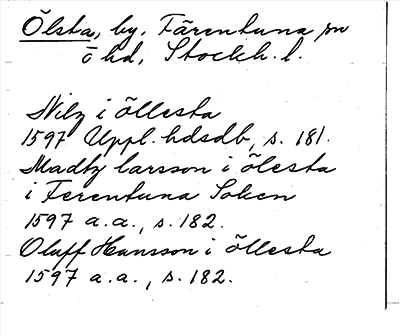 Ölsta, by, Färentuna sn
o hd, Stockh. l.
Nilz i öllesta
1597 Uppl. hdsdb, s. 181.
Madtz larsson i ölesta
i Ferentuna Soken
1597 a.a., s. 182.
Oluff Hansson i öllesta
1597 a.a., s. 182.